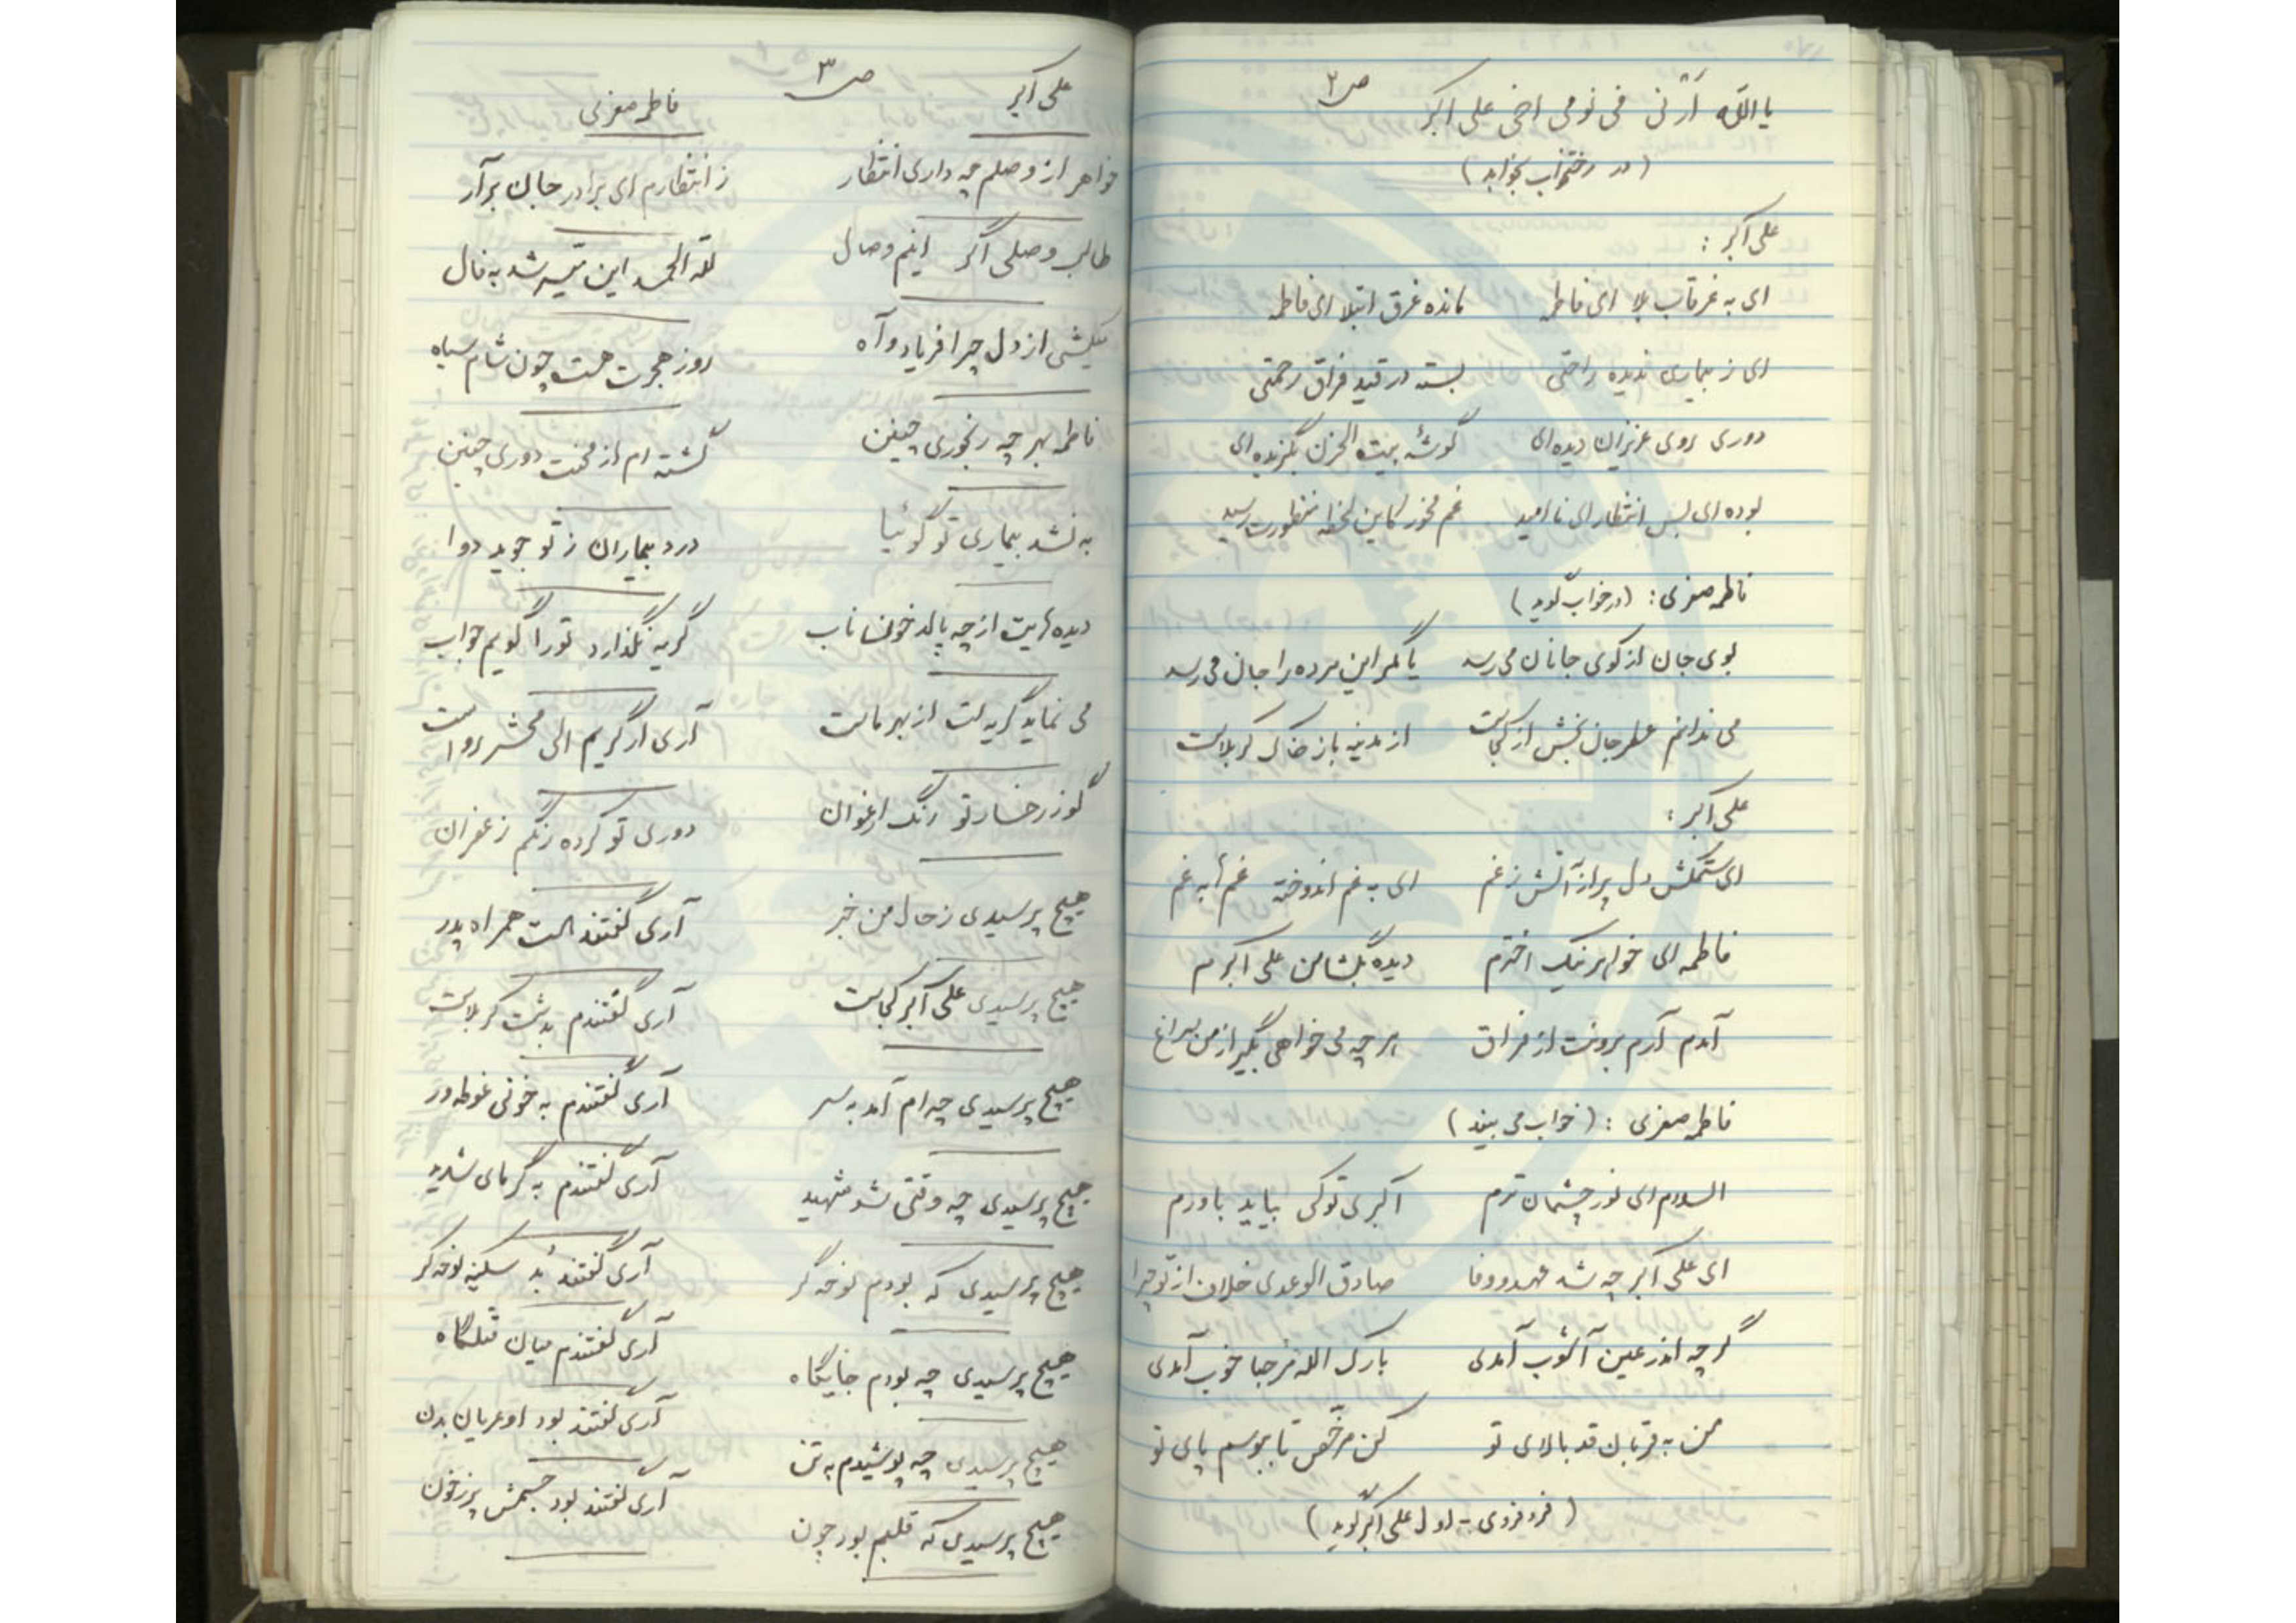 ص ۲
یا الله أرنی فی نومی اخی علی اکبر
(در رختخواب بخوابد)
علی اکبر :
ای به غرقاب بلا ای فاطمه مانده غرق ابتلا ای فاطمه
ای ز بیماری ندیده راحتی بسته در قید فراق زحمتی
دوری روی عزیزان دیده ای گوشهٔ بیت الحزن بگزیده ای
بوده ای بس انتظار ای ناامید غم مخور کاین لحظه منظورت رسید
فاطمه صغری : (در خواب گوید)
بوی جان از کوی جانان می رسد یا مگر این مرده را جان می رسد
می ندانم عطر جان بخش از کجاست از مدینه یا ز خاک کربلاست
علی اکبر :
ای ستمکش دل پر از آتش ز غم ای به غم اندوخته غم ها به غم
فاطمه ای خواهر نیک اخترم دیده بگشا من علی اکبرم
آمدم آرم برونت از فراق هر چه می خواهی بگیر از من سراغ
فاطمه صغری : (خواب می بیند)
السلام ای نور چشمان ترم اکبری تو کی بیاید باورم
ای علی اکبر چه شد عهد و وفا صادق الوعدی خلاف از تو چرا
گرچه اندر عین آشوب آمدی بارک الله مرحبا خوب آمدی
من به قربان قد بالای تو کن مرخّص تا ببوسم پای تو
(فرد فردی - اول علی اکبر گوید)
ص ۳
علی اکبر فاطمه صغری
خواهر از وصلم چه داری انتظار ز انتظارم ای برادر جان برآر
طالب وصلی اگر اینم وصال لله الحمد این میسر شد به فال
میکشی از دل چرا فریاد و آه روز هجرت هست چون شام سیاه
فاطمه بهر چه رنجوری چنین گشته ام از محنت دوری چنین
به نشد بیماری تو گوئیا درد بیماران ز تو جوید دوا
دیده هایت از چه پالد خون ناب گریه نگذارد تو را گویم جواب
می نماید گریه ات از بهر ماست آری ار گریم الی محشر رواست
کو ز رخسار تو رنگ ارغوان دوری تو کرده رنگم زعفران
هیچ پرسیدی ز حال من خبر آری گفتند است همراه پدر
هیچ پرسیدی علی اکبر کجاست آری گفتندم بدشت کربلاست
هیچ پرسیدی چه ام آمد به سر آری گفتندم به خونی غوطه ور
هیچ پرسیدی چه وقتی شد شهید آری گفتندم به گرمای شدید
هیچ پرسیدی که بودم نوحه گر آری گفتند بُد سکینه نوحه گر
هیچ پرسیدی چه بودم جایگاه آری گفتندم میان قتلگاه
هیچ پرسیدی چه پوشیدم به تن آری گفتند بود او عریان بدن
هیچ پرسیدی که قلبم بود چون آری گفتند بود جسمش پر ز خون